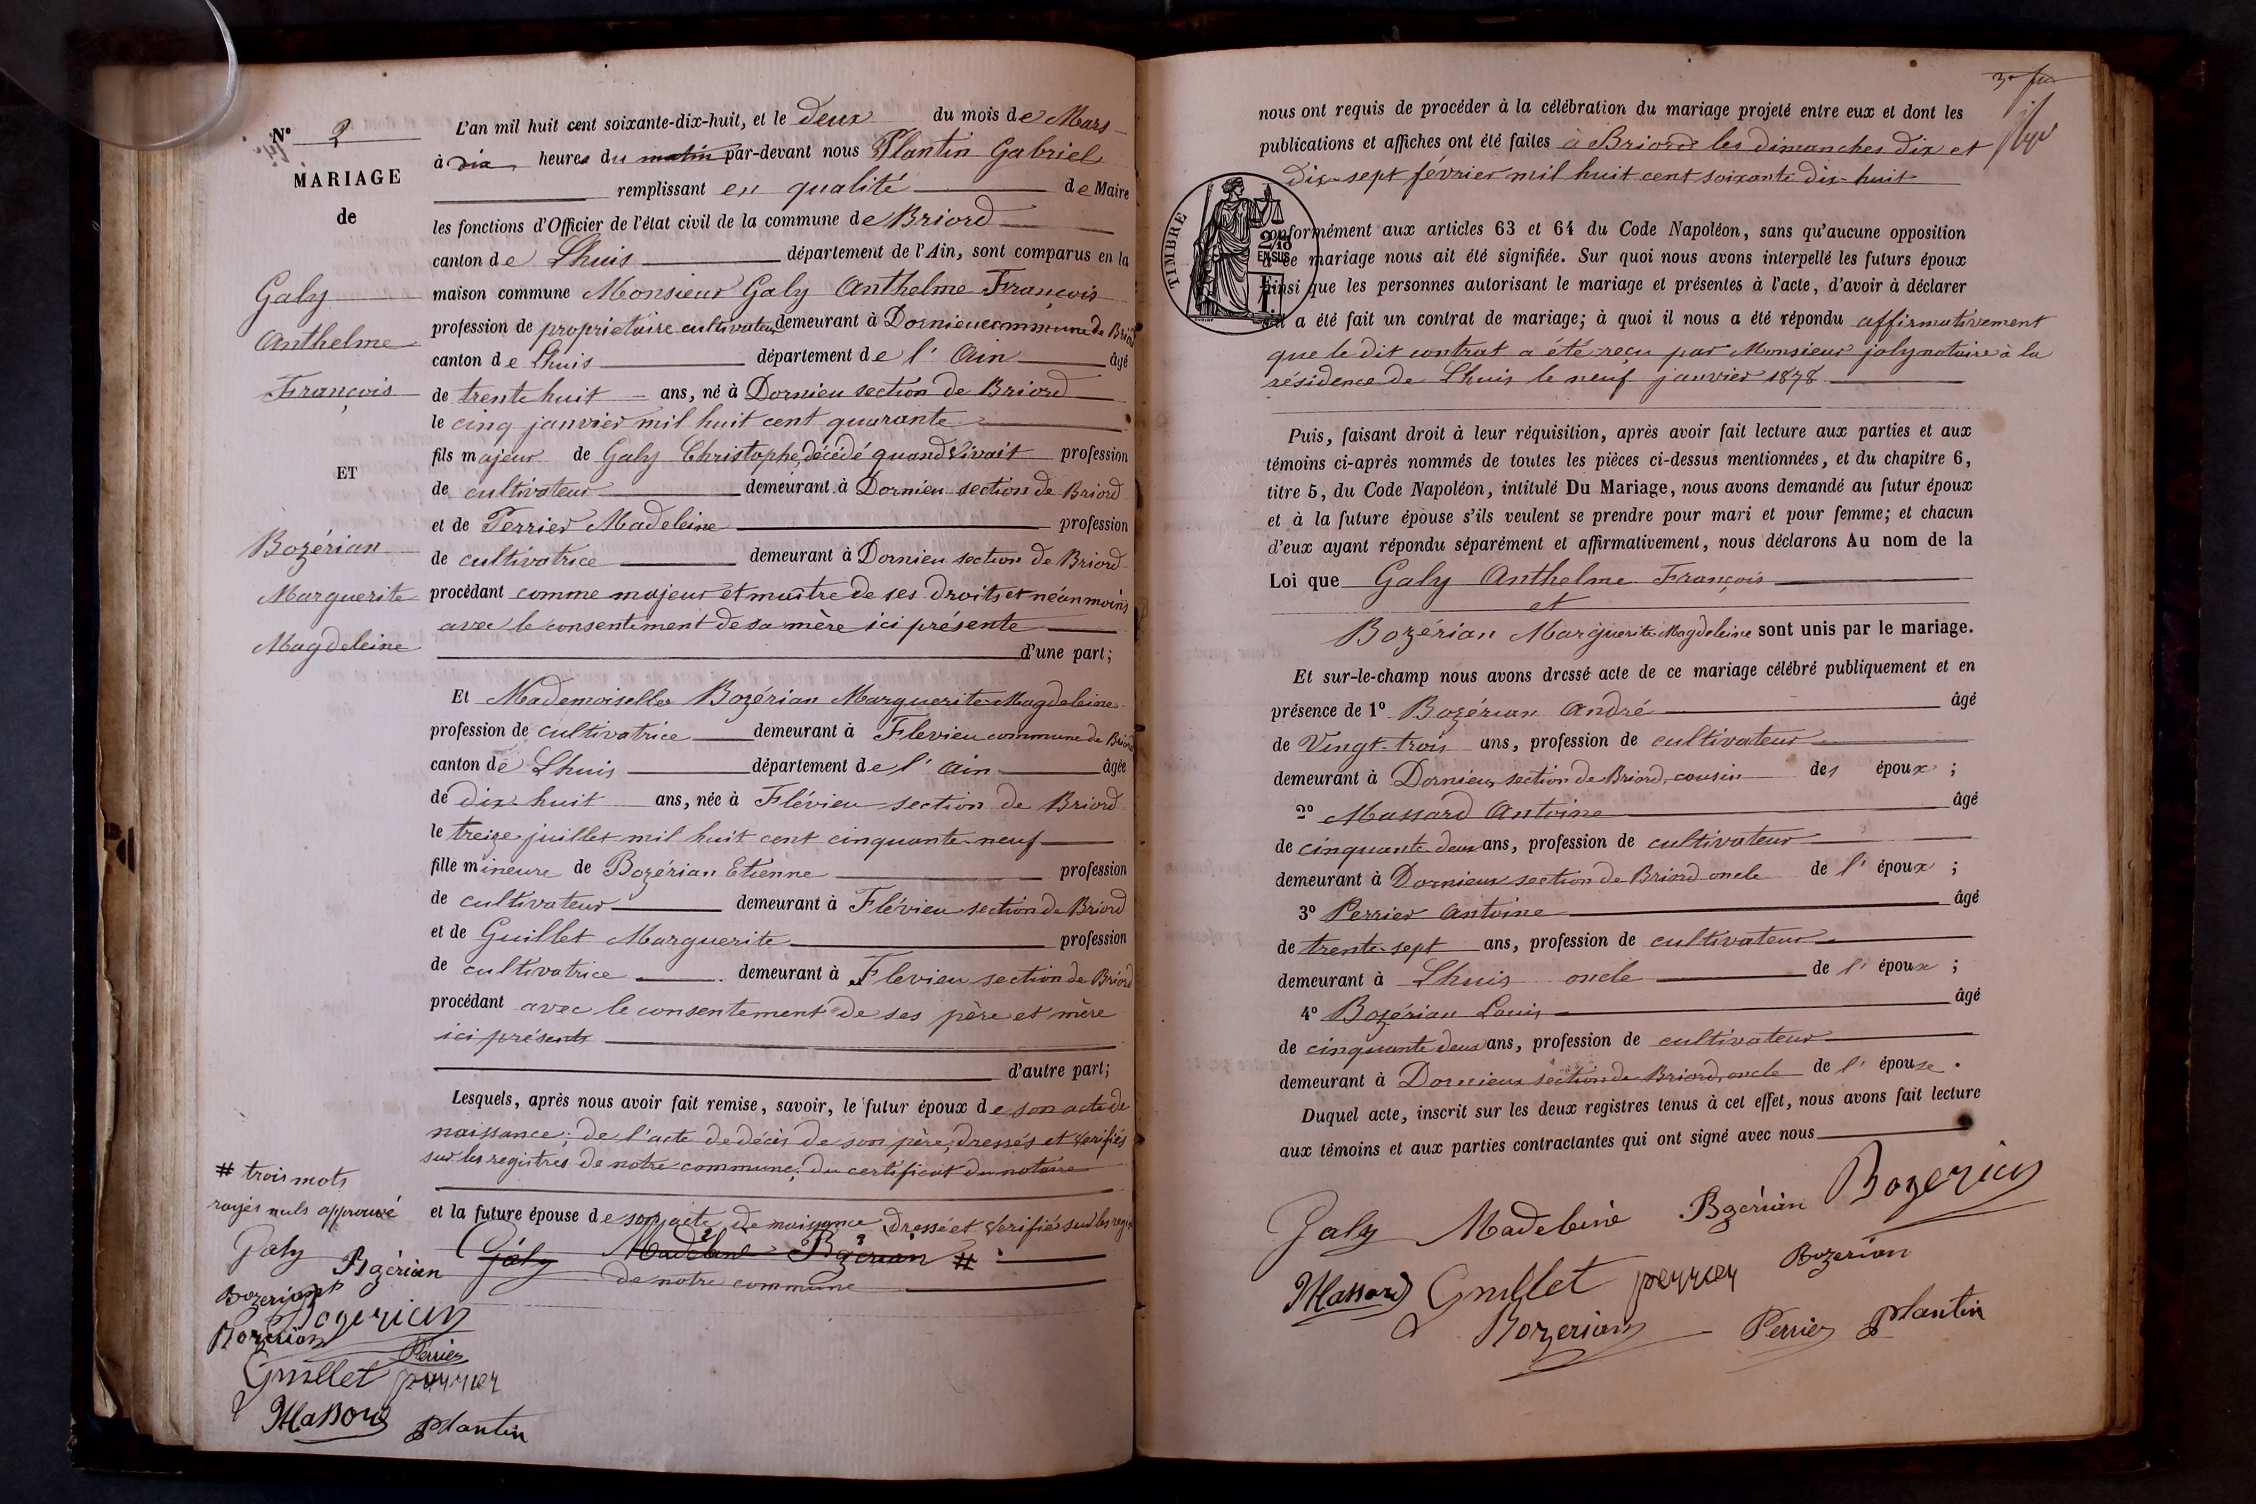 N° 2
MARIAGE
de
Galy
Anthelme
François
ET
Bozérian
Marguerite
Magdeleine
L'an mil huit cent soixante-dix-huit, et le deux du mois de Mars
à dix heures du matin par-devant nous Plantin Gabriel
remplissant en qualité de Maire
les fonctions d'Officier de l'état civil de la commune de Briord
canton de Lhuis département de l'Ain, sont comparus en la
maison commune Monsieur Galy Anthelme François
profession de propriétaire cultivateur demeurant à Dornieu commune de Briord
canton de Lhuis département de l'Ain âgé
de trente huit ans, né à Dornieu section de Briord
le cinq janvier mil huit cent quarante
fils majeur de Galy Christophe, décédé quand Vivait profession
de cultivateur demeurant à Dornieu section de Briord
et de Perrier Madeleine profession
de cultivatrice demeurant à Dornieu section de Briord
procédant comme majeur et maître de ses droits et néanmoins
avec le consentement de sa mère ici présente
d'une part;
Et Mademoiselle Bozérian Marguerite Magdeleine
profession de cultivatrice demeurant à Flevieu commune de Briord
canton de Lhuis département de l'Ain âgée
de dix-huit ans, née à Flévieu section de Briord
le treize juillet mil huit cent cinquante-neuf
fille mineure de Bozérian Etienne profession
de cultivateur demeurant à Flévieu section de Briord
et de Guillet Marguerite profession
de cultivatrice demeurant à Flevieu section de Briord
procédant avec le consentement de ses père et mère
ici présents
d'autre part;
Lesquels, après nous avoir fait remise, savoir, le futur époux de son acte de
naissance; de l'acte de décès de son père, dressés et Verifiés
sur les registres de notre commune; du certificat du notaire
et la future épouse de son acte de naissance dressé et Verifié sur les regis
Galy Madeleine Bozerian #
de notre commune
# trois mots
rayés nuls approuvé
Galy Bozérian
Bozerian
Bozerian
Bozerian
Perrier
Guillet perrier
Massard Plantin
nous ont requis de procéder à la célébration du mariage projeté entre eux et dont les
publications et affiches ont été faites à Briord les dimanches dix et
dix-sept février mil huit cent soixante dix-huit
TIMBRE
2/10
EN SUS
conformément aux articles 63 et 64 du Code Napoléon, sans qu'aucune opposition
à ce mariage nous ait été signifiée. Sur quoi nous avons interpellé les futurs époux
ainsi que les personnes autorisant le mariage et présentes à l'acte, d'avoir à déclarer
s'il a été fait un contrat de mariage; à quoi il nous a été répondu affirmativement
que le dit contrat a été reçu par Monsieur joly notaire à la
résidence de Lhuis le neuf janvier 1878
Puis, faisant droit à leur réquisition, après avoir fait lecture aux parties et aux
témoins ci-après nommés de toutes les pièces ci-dessus mentionnées, et du chapitre 6,
titre 5, du Code Napoléon, intitulé Du Mariage, nous avons demandé au futur époux
et à la future épouse s'ils veulent se prendre pour mari et pour femme; et chacun
d'eux ayant répondu séparément et affirmativement, nous déclarons Au nom de la
Loi que Galy Anthelme François
et
Bozérian Marguerite Magdeleine sont unis par le mariage.
Et sur-le-champ nous avons dressé acte de ce mariage célébré publiquement et en
présence de 1° Bozérian André âgé
de Vingt-trois ans, profession de cultivateur
demeurant à Dornieu, section de Briord, cousin des époux;
2° Massard Antoine âgé
de cinquante deux ans, profession de cultivateur
demeurant à Dornieux section de Briord oncle de l'époux;
3° Perrier Antoine âgé
de trente-sept ans, profession de cultivateur
demeurant à Lhuis oncle de l'époux;
4° Bozérian Louis âgé
de cinquante deux ans, profession de cultivateur
demeurant à Dornieux section de Briord, oncle de l'épouse.
Duquel acte, inscrit sur les deux registres tenus à cet effet, nous avons fait lecture
aux témoins et aux parties contractantes qui ont signé avec nous
Galy Madeleine Bozérian Bozerian
Massard Guillet perrier Bozerian
Bozerian Perrier Plantin